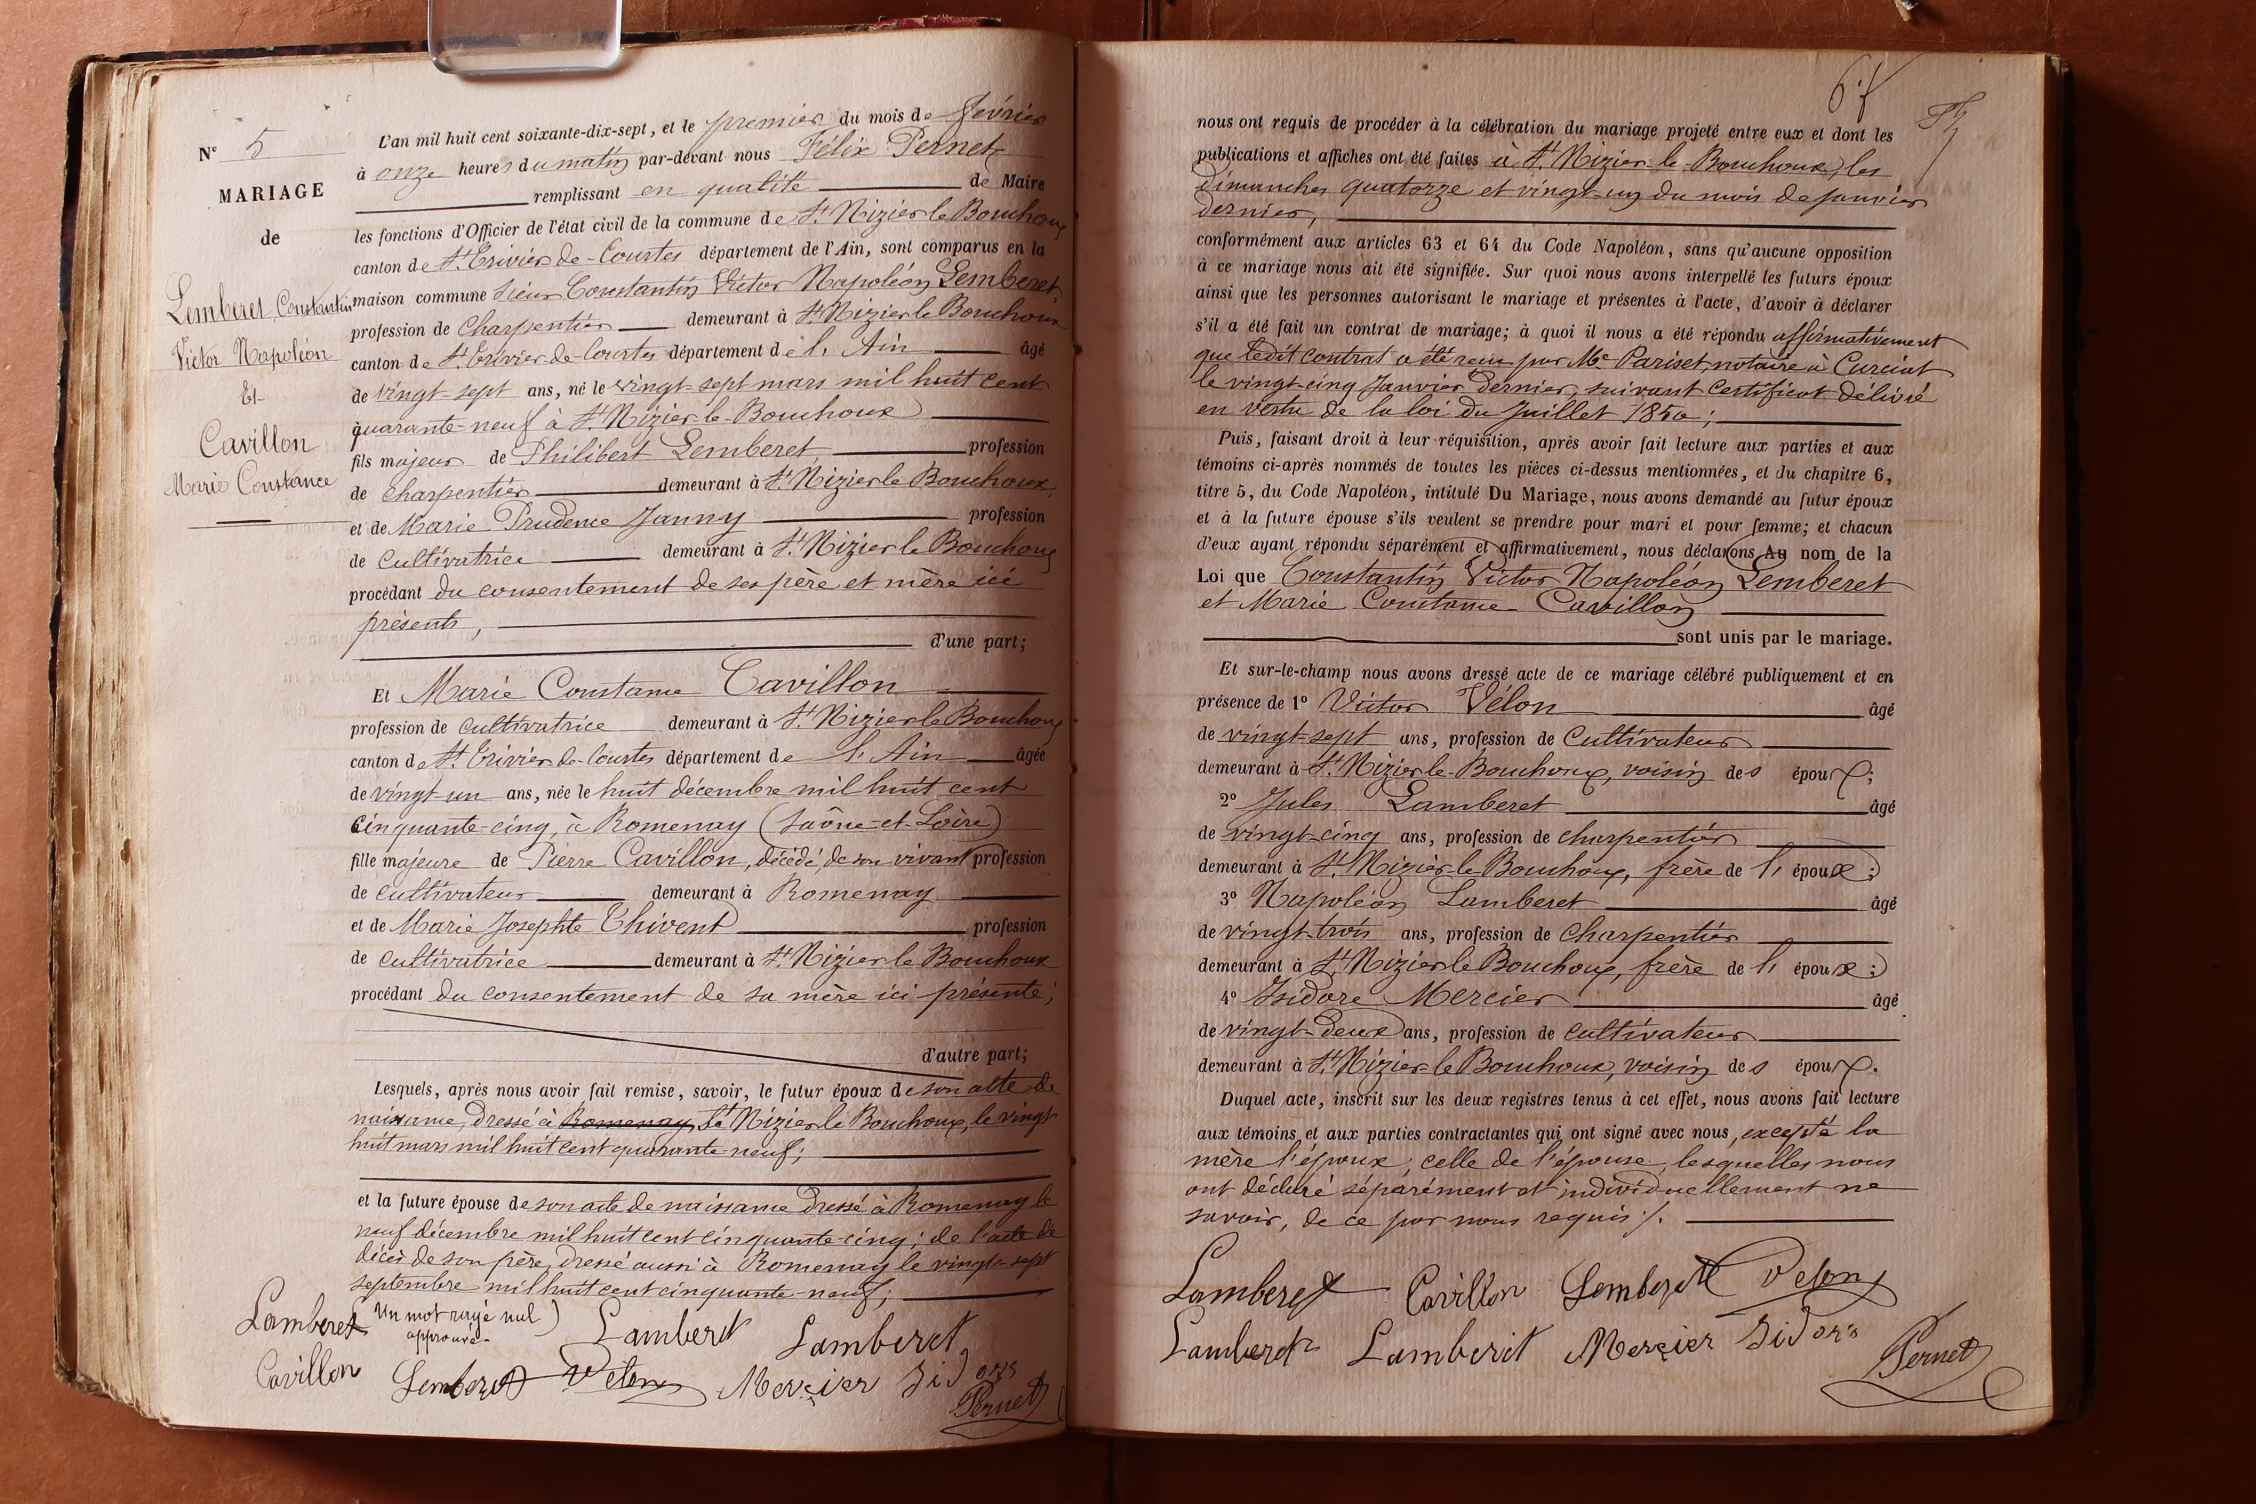 N° 5
MARIAGE
de
Lemberet, Constantin
Victor Napoléon
Et
Cavillon
Marie Constance
L'an mil huit cent soixante-dix-sept, et le premier du mois de février
à onze heures du matin par-devant nous Félix Pernet
remplissant en qualité de Maire
les fonctions d'Officier de l'état civil de la commune de St. Nizier le Bouchoux
canton de St. Trivier-de-Courtes département de l'Ain, sont comparus en la
maison commune sieur Constantin Victor Napoléon Lemberet,
profession de charpentier demeurant à St. Nizier le Bouchoux
canton de St. Trivier-de-Courtes département de l'Ain âgé
de vingt-sept ans, né le vingt-sept mars mil huit cent
quarante-neuf à St. Nizier-le-Bouchoux
fils majeur de Philibert Lemberet, profession
de charpentier demeurant à St. Nizier le Bouchoux,
et de Marie Prudence Janny profession
de cultivatrice demeurant à St. Nizier le Bouchoux
procédant du consentement de ses père et mère ici
présents,
d'une part;
Et Marie Constance Cavillon
profession de cultivatrice demeurant à St. Nizier le Bouchoux
canton de St. Trivier-de-Courtes département de l'Ain âgée
de vingt-un ans, née le huit décembre mil huit cent
cinquante-cinq, à Romenay (Saône-et-Loire)
fille majeure de Pierre Cavillon, décédé, de son vivant profession
de cultivateur demeurant à Romenay
et de Marie Josephte Thivent profession
de cultivatrice demeurant à St. Nizier le Bouchoux
procédant du consentement de sa mère ici présente;
d'autre part;
Lesquels, après nous avoir fait remise, savoir, le futur époux de son acte de
naissance, dressé à Romenay St Nizier le Bouchoux, le vingt
huit mars mil huit cent quarante-neuf;
et la future épouse de son acte de naissance dressé à Romenay le
neuf décembre mil huit cent cinquante-cinq; de l'acte de
décès de son père, dressé aussi à Romenay le vingt-sept
septembre mil huit cent cinquante-neuf;
Lamberet Un mot rayé nul) Lamberet Lamberet
approuvé.
Cavillon Lemberet Velon Mercier Isidore
Pernet
nous ont requis de procéder à la célébration du mariage projeté entre eux et dont les
publications et affiches ont été faites à St. Nizier-le-Bouchoux, les
dimanches quatorze et vingt-un du mois de janvier
dernier,
conformément aux articles 63 et 64 du Code Napoléon, sans qu'aucune opposition
à ce mariage nous ait été signifiée. Sur quoi nous avons interpellé les futurs époux
ainsi que les personnes autorisant le mariage et présentes à l'acte, d'avoir à déclarer
s'il a été fait un contrat de mariage; à quoi il nous a été répondu affirmativement
que ledit contrat a été reçu par Me. Pariset, notaire à Curciat
le vingt-cinq Janvier dernier, suivant certificat délivré
en vertu de la loi du Juillet 1850;
Puis, faisant droit à leur réquisition, après avoir fait lecture aux parties et aux
témoins ci-après nommés de toutes les pièces ci-dessus mentionnées, et du chapitre 6,
titre 5, du Code Napoléon, intitulé Du Mariage, nous avons demandé au futur époux
et à la future épouse s'ils veulent se prendre pour mari et pour femme; et chacun
d'eux ayant répondu séparément et affirmativement, nous déclarons Au nom de la
Loi que Constantin Victor Napoléon Lemberet
et Marie Constance Cavillon
sont unis par le mariage.
Et sur-le-champ nous avons dressé acte de ce mariage célébré publiquement et en
présence de 1° Victor Vélon âgé
de vingt-sept ans, profession de cultivateur
demeurant à St. Nizier le Bouchoux, voisin des époux;
2° Jules Lamberet âgé
de vingt-cinq ans, profession de charpentier
demeurant à St. Nizier-le-Bouchoux, frère de l'époux;
3° Napoléon Lamberet âgé
de vingt-trois ans, profession de charpentier
demeurant à St. Nizier le Bouchoux, frère de l'époux;
4° Isidore Mercier âgé
de vingt-deux ans, profession de cultivateur
demeurant à St. Nizier le Bouchoux, voisin des époux.
Duquel acte, inscrit sur les deux registres tenus à cet effet, nous avons fait lecture
aux témoins et aux parties contractantes qui ont signé avec nous, excepté la
mère l'époux, celle de l'épouse, lesquelles nous
ont déclaré séparément et individuellement ne
savoir, de ce par nous requis ./.
Lamberet Cavillon Lemberet Velon
Lamberet Lamberet Mercier Isidore
Pernet